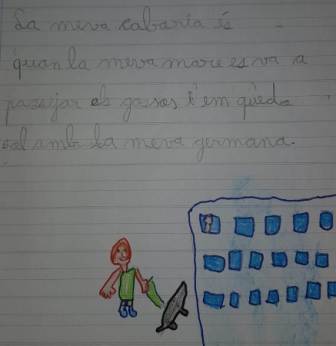 La meva cabaria és
quan la meva mare es va a
passejar els gossos i em queda
sol amb la meva germana.